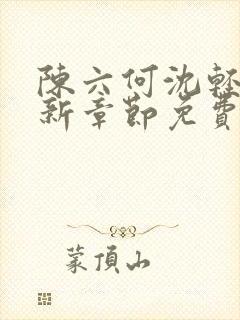 陳六何沈輕
新章節免費
蒙頂山